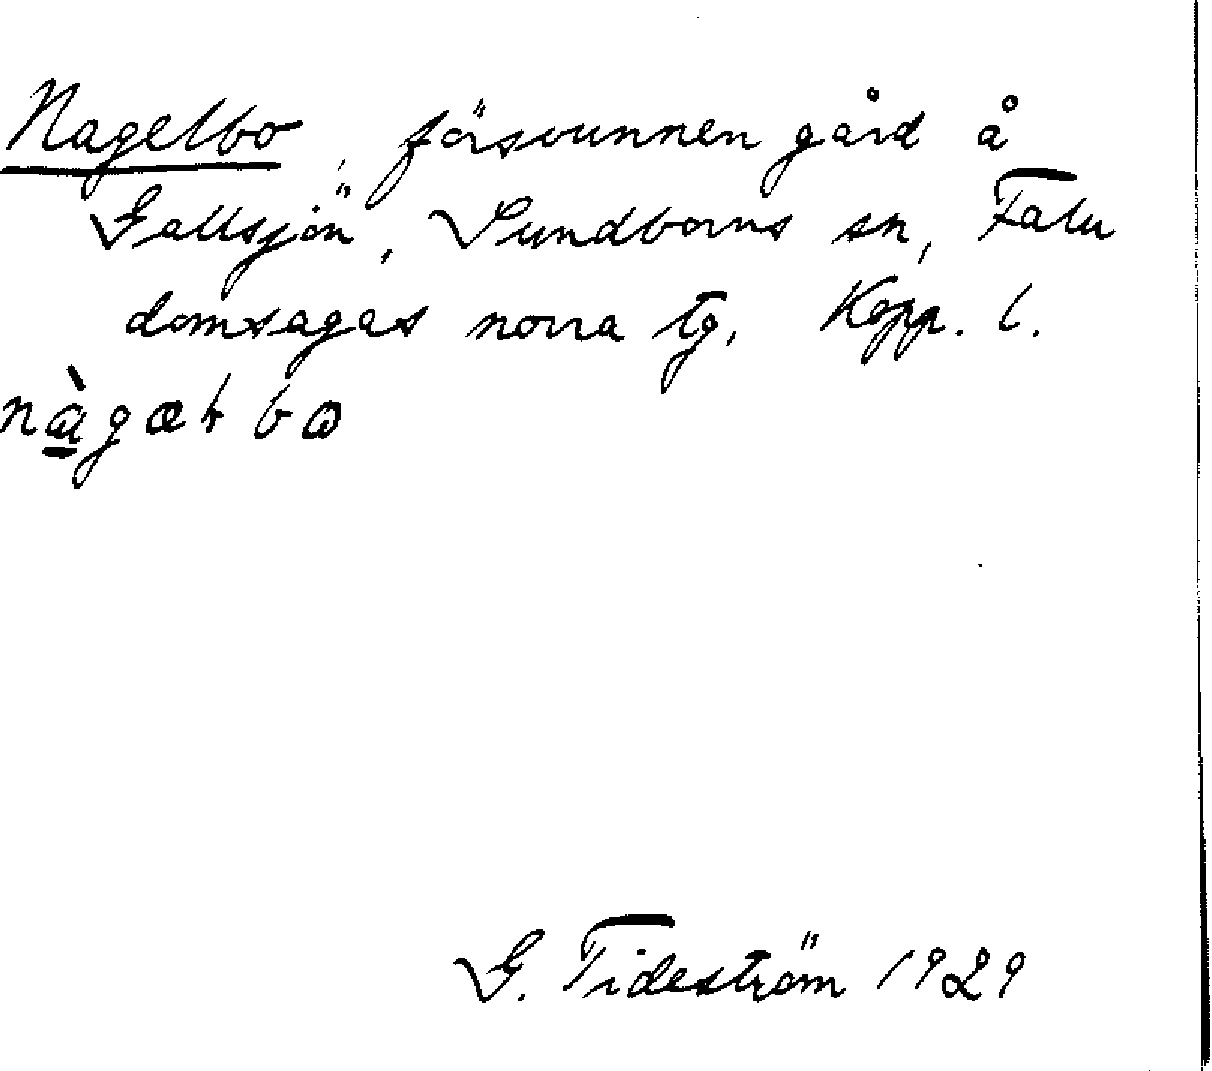 Nagelbo, försvunnen gård å
Gallsjön, Sundborns sn, Falu
domsagas norra tg, Kopp. l.
G. Tideström 1929